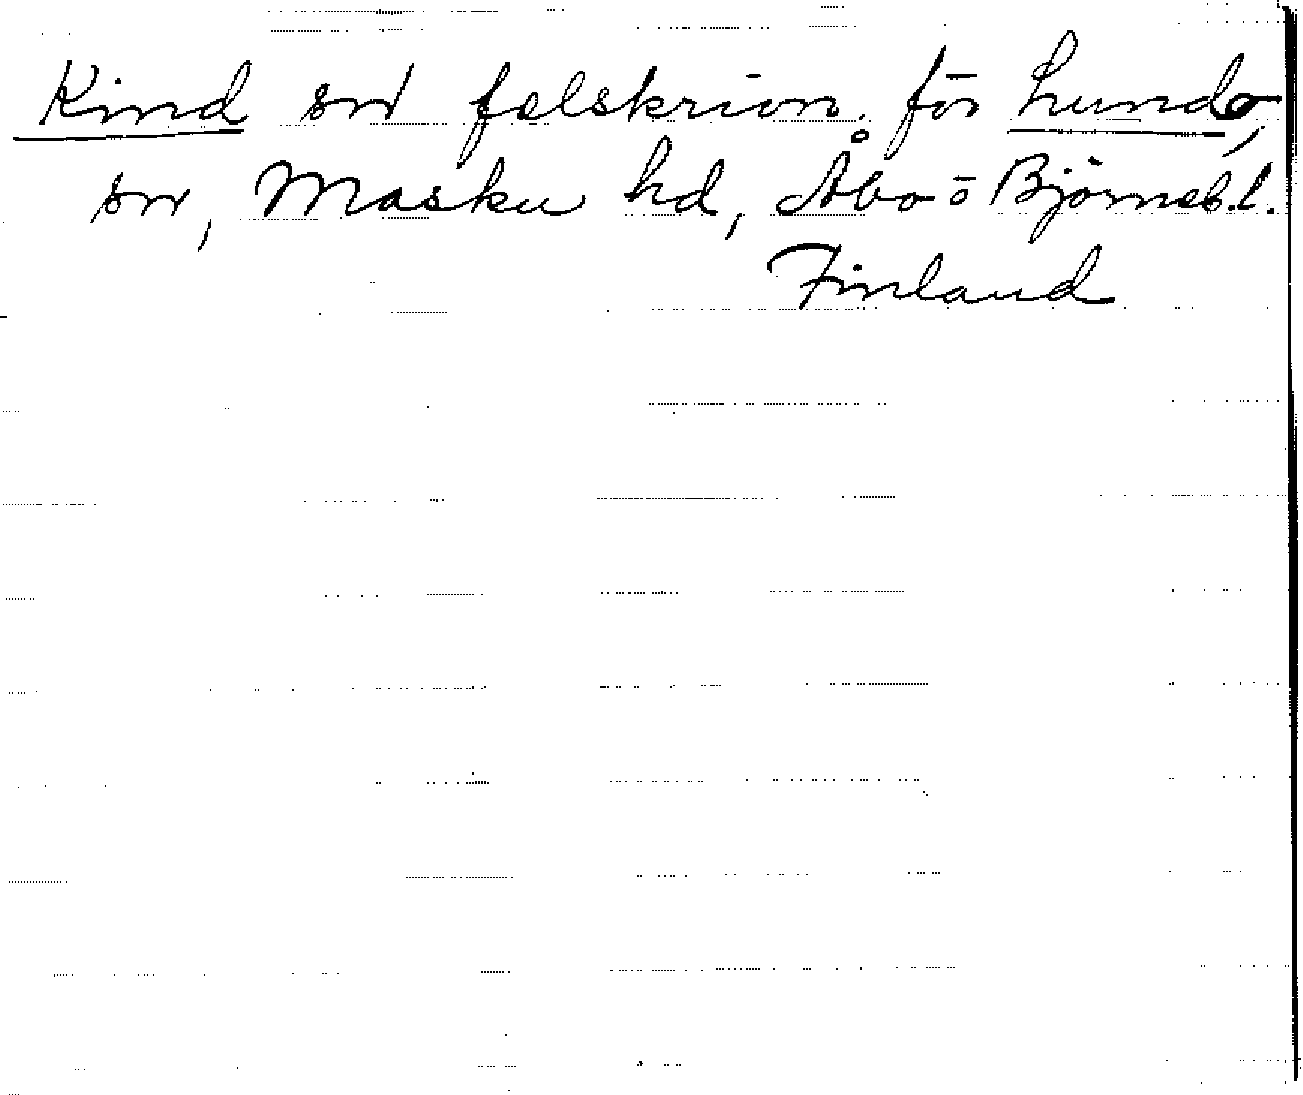 Kind sn felskrivn. för Lundo,
sn, Masku hd, Åbo o Björneb. l.
Finland